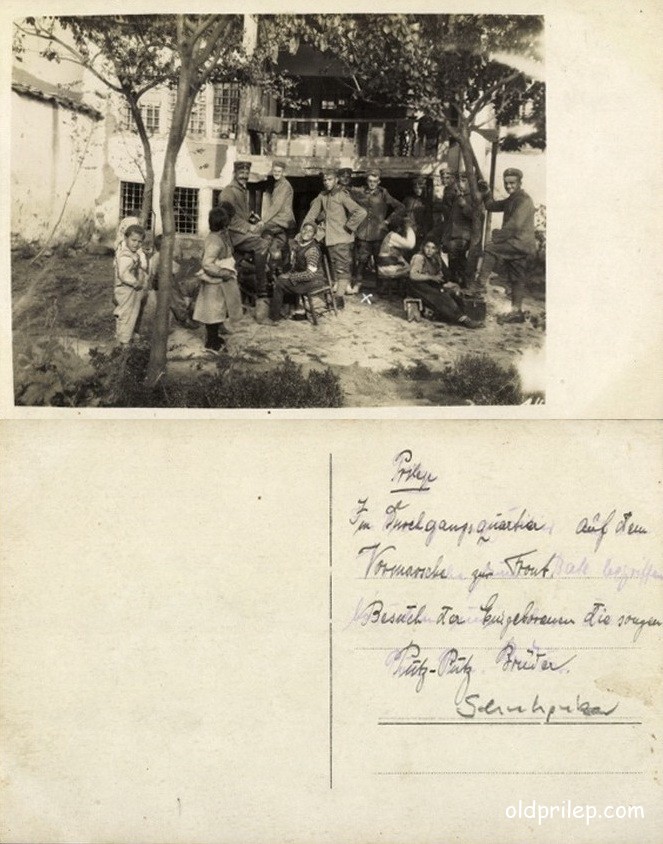 Prilep
Im Durchgangsquartier auf dem
Vormarsche zur Front.
Besuch der Eingeborenen die sogen
Putz-Putz Brüder.
oldprilep.com